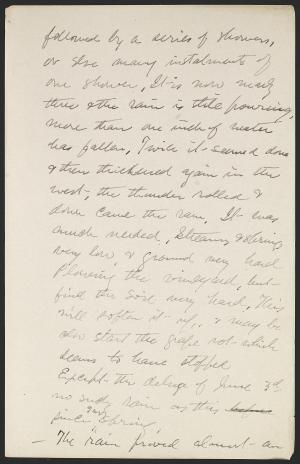 followed by a series of showers,
or else many instalments of
one shower. It is now nearly
three & the rain is still pouring,
more than one inch of water
has fallen. Twice it seemed done
& then thickened again in the
west, the thunder rolled &
down came the rain. It was
much needed. Streams & springs
very low, & ground very hard.
Plowing the vineyard, but
find the soil very hard. This
will soften it up, & may be
also start the grape rot which
seems to have stopped
Except the deluge of June 3rd,
no such rain as this before
since Spring.
— The rain proved almost an